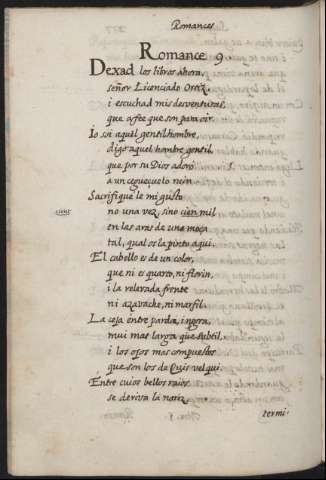 Romances
Romance 9
Dexad los libros ahora,
señor Licenciado Ortiz,
i escuchad mis desventuras,
que a fee que son para oir.
Io soi aquel gentilhombre,
digo aquel hombre gentil,
que por su Dios adoró
a un ceguecuelo ruin
Sacrifique le mi gusto
no una vez, sino cien mil
en las aras de una moça
tal, qual os la pinto aqui.
El cabello es de un color,
que ni es quarto, ni florin,
i la relevada frente
ni azavache, ni marfil.
La ceja entre parda, i negra,
mui mas larga que subtil,
i los ojos mas compuestos
que son los de Quis vel qui.
Entre cuios bellos raios
se deriva la nariz,
termi-